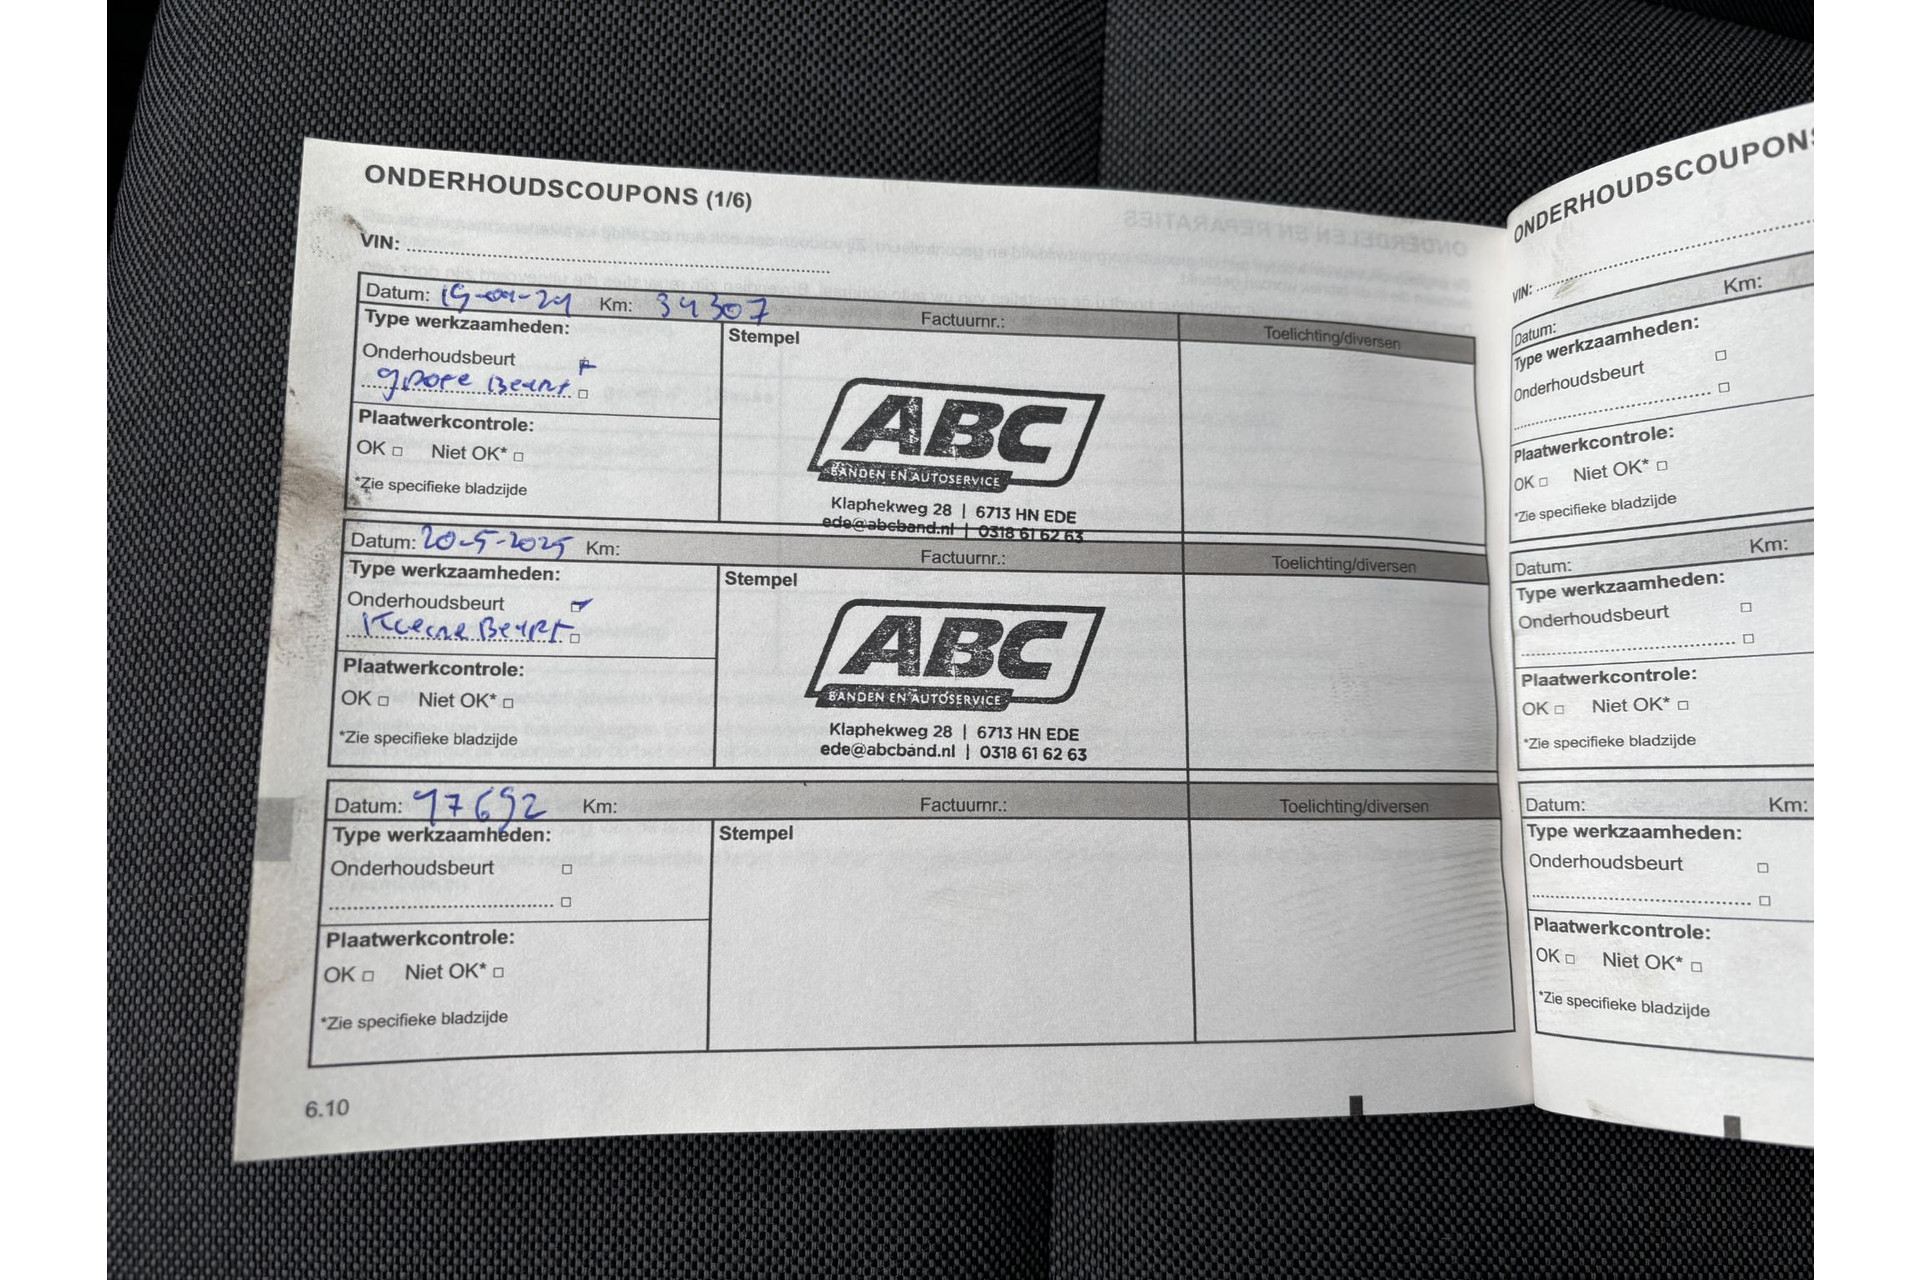 ONDERHOUDSCOUPONS (1/6)
VIN:
Datum: Km: 34307 Factuurnr.: Toelichting/diversen
Type werkzaamheden: Stempel
Onderhoudsbeurt
grote Beurt
Plaatwerkcontrole:
OK Niet OK*
*Zie specifieke bladzijde
ABC
BANDEN EN AUTOSERVICE
Klaphekweg 28 | 6713 HN EDE
ede@abcband.nl | 0318 61 62 63
Datum: 20-5-2025 Km: Factuurnr.: Toelichting/diversen
Type werkzaamheden: Stempel
Onderhoudsbeurt
Kleine Beurt
Plaatwerkcontrole:
OK Niet OK*
*Zie specifieke bladzijde
ABC
BANDEN EN AUTOSERVICE
Klaphekweg 28 | 6713 HN EDE
ede@abcband.nl | 0318 61 62 63
Datum: 47692 Km: Factuurnr.: Toelichting/diversen
Type werkzaamheden: Stempel
Onderhoudsbeurt
Plaatwerkcontrole:
OK Niet OK*
*Zie specifieke bladzijde
6.10
ONDERHOUDSCOUPONS
VIN:
Datum: Km:
Type werkzaamheden:
Onderhoudsbeurt
Plaatwerkcontrole:
OK Niet OK*
*Zie specifieke bladzijde
Datum: Km:
Type werkzaamheden:
Onderhoudsbeurt
Plaatwerkcontrole:
OK Niet OK*
*Zie specifieke bladzijde
Datum: Km:
Type werkzaamheden:
Onderhoudsbeurt
Plaatwerkcontrole:
OK Niet OK*
*Zie specifieke bladzijde